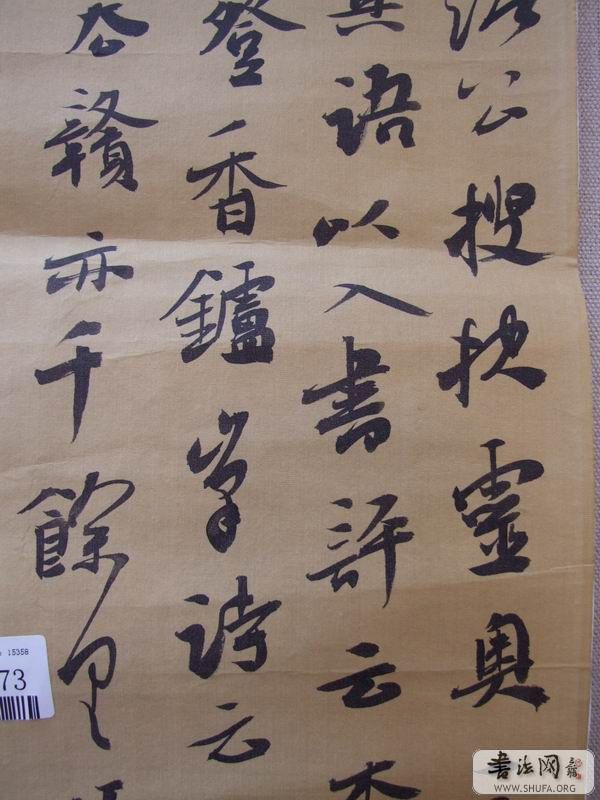 公搜抉靈奥
語以入書評云
登香鑪峯詩云
贛亦千餘里
15358
73
書法网
WWW.SHUFA.ORG